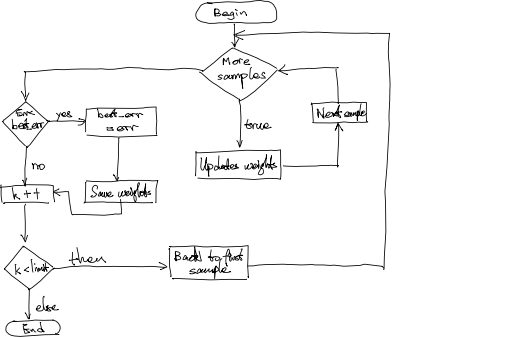 Begin
More
samples
true
Updates weights
Next sample
Err<
best_err
yes
best_err
= err
no
Save weights
k++
k < limit
then
Back to first
sample
else
End